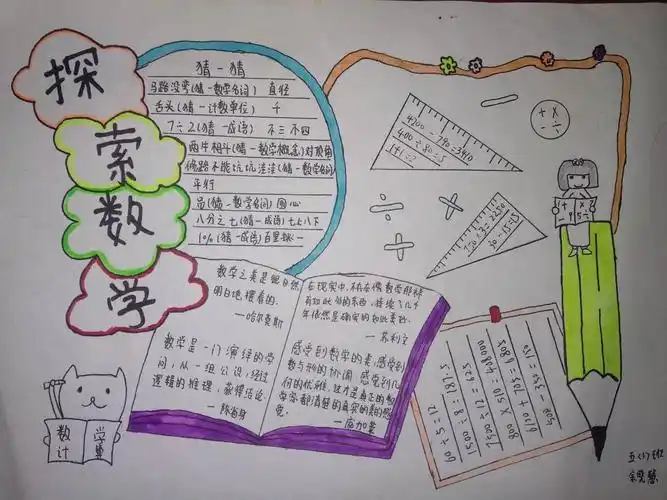 探
索
数
学
猜一猜
马路没弯(猜一数学名词) 直径
舌头(猜一计数单位) 千
7÷2(猜一成语) 不三不四
两牛相斗(猜一数学概念)对顶角
修路不能坑坑洼洼(猜一数学名词)
平行
员(猜一数学名词) 圆心
八分之七(猜一成语)七上八下
10%(猜一成语)百里挑一
4200-790=3410
400÷80=5
1+1=2
+ ×
- ÷
750×3=2250
30-15=15
数学之美是很自然
明白地摆着的.
—哈尔莫斯
数学是一门演绎的学
问,从一组公设,经过
逻辑的推理,获得结论.
—陈省身
在现实中,不存在像数学那样
有如此多的东西,持续了几千
年依然是确定的如此美好.
—苏利文
感受到数学的美,感受到
数与形的协调,感受到几
何的优雅,这才是真正的数
学家都清楚的真实的美的感
觉.
—庞加莱
60÷5=12
1500÷8=187.5
7500÷12=625
800×810=648000
6120+705=6825
数 学
计 算
五(1)班